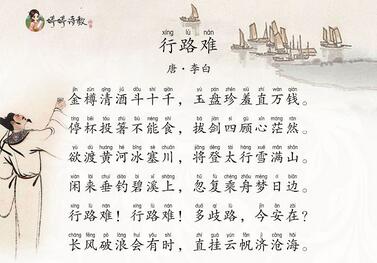 婷婷诗教
xíng lù nán
行路难
唐·李白
jīn zūn qīng jiǔ dǒu shí qiān yù pán zhēn xiū zhí wàn qián
金樽清酒斗十千，玉盘珍羞直万钱。
tíng bēi tóu zhù bù néng shí bá jiàn sì gù xīn máng rán
停杯投箸不能食，拔剑四顾心茫然。
yù dù huáng hé bīng sè chuān jiāng dēng tài háng xuě mǎn shān
欲渡黄河冰塞川，将登太行雪满山。
xián lái chuí diào bì xī shàng hū fù chéng zhōu mèng rì biān
闲来垂钓碧溪上，忽复乘舟梦日边。
xíng lù nán xíng lù nán duō qí lù jīn ān zài
行路难！行路难！多歧路，今安在？
cháng fēng pò làng huì yǒu shí zhí guà yún fān jì cāng hǎi
长风破浪会有时，直挂云帆济沧海。